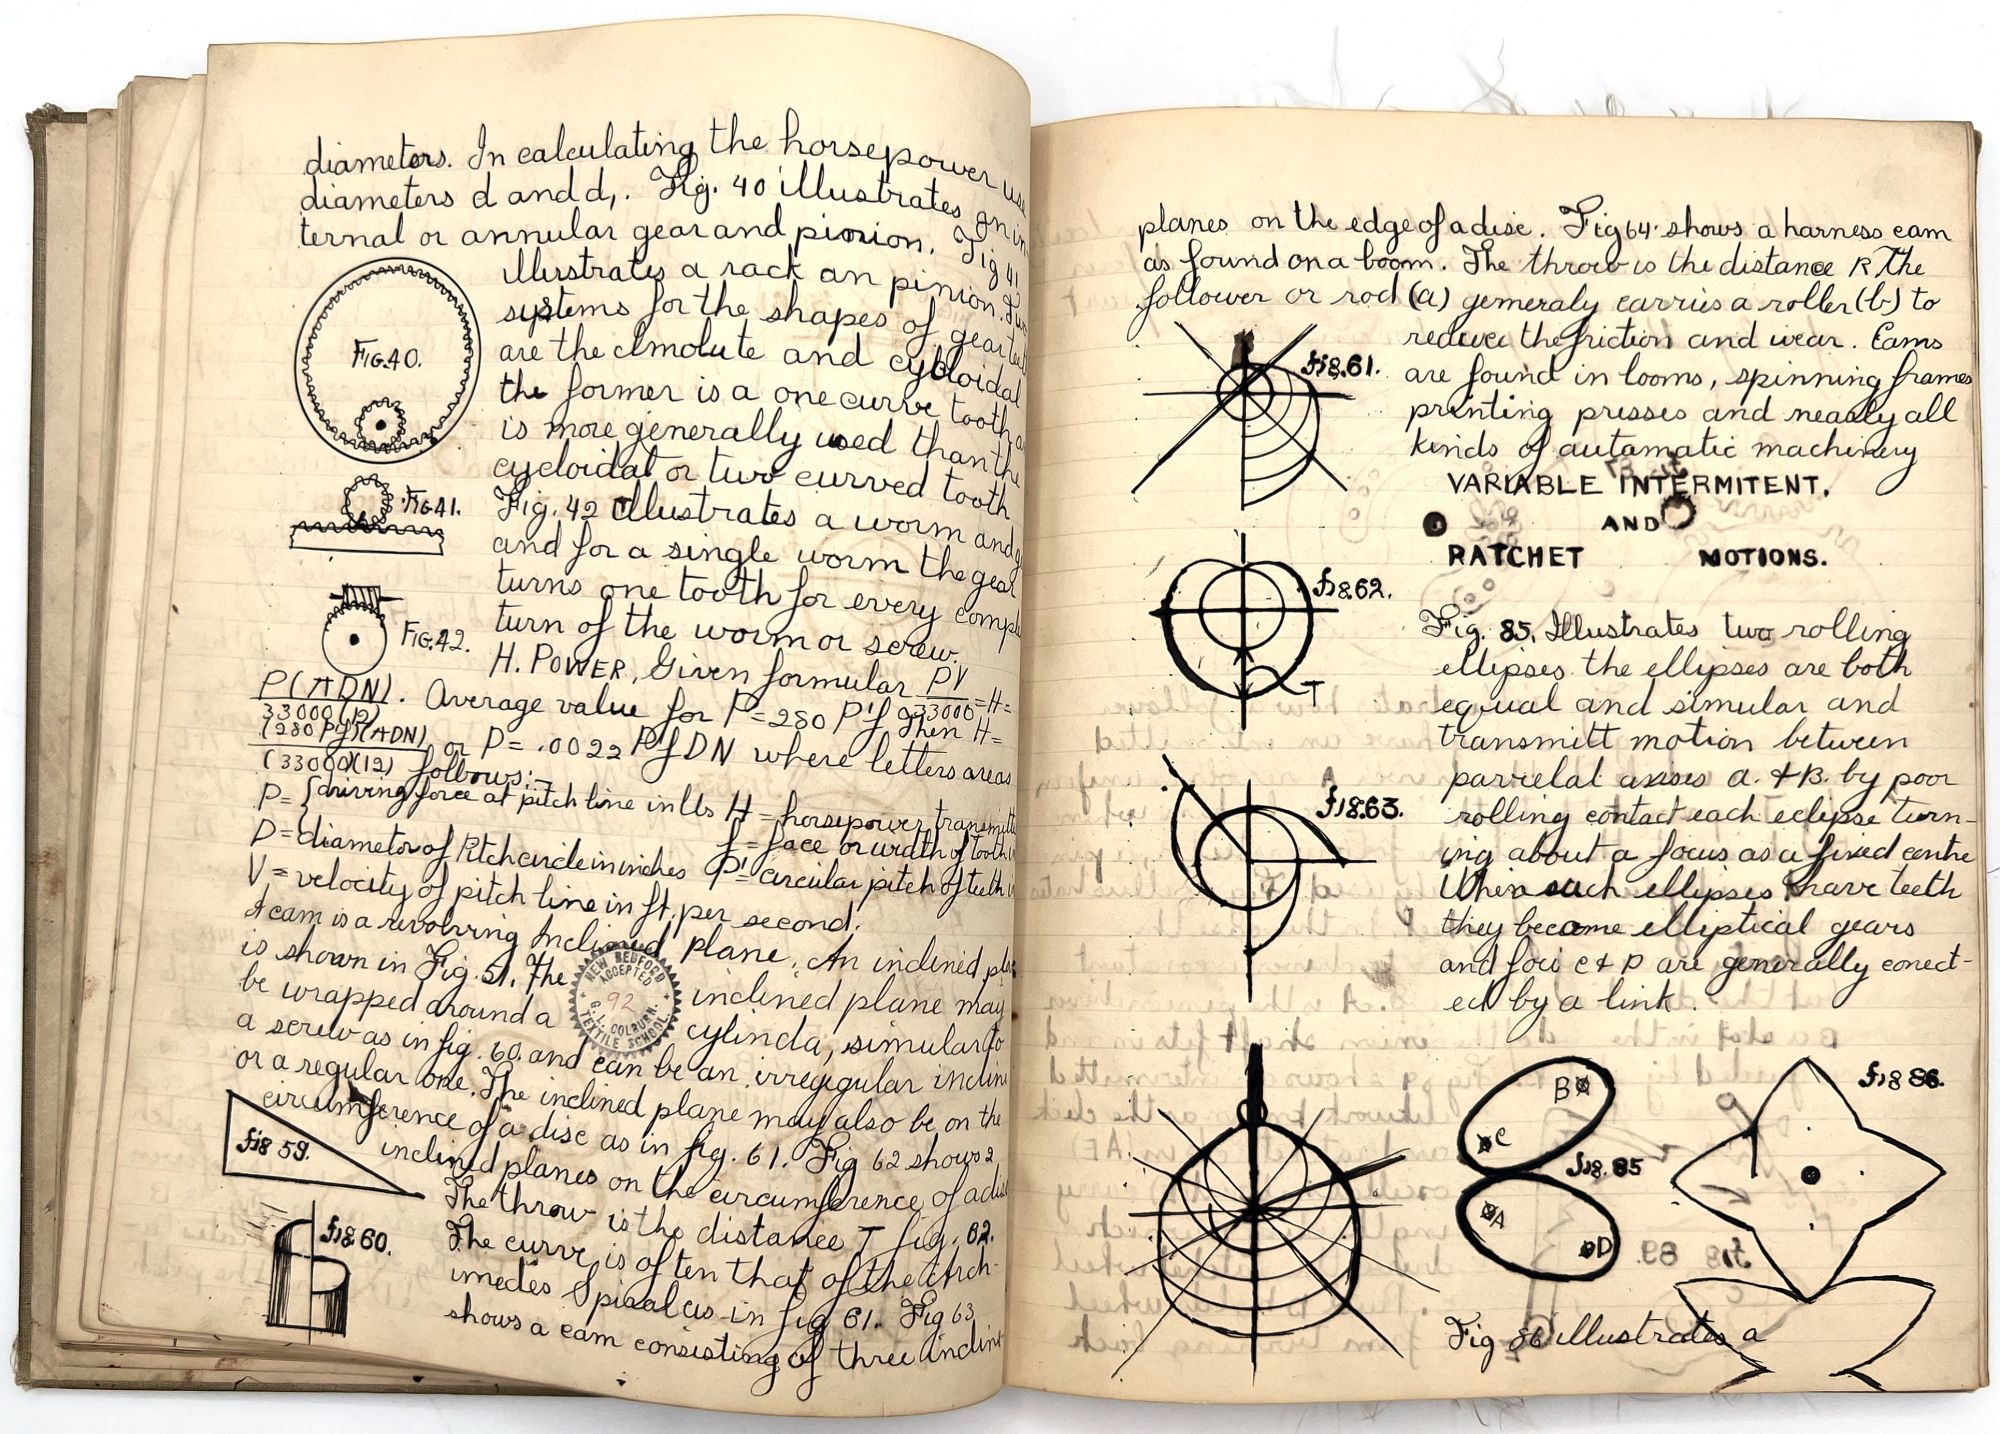 diameters. In calculating the horsepower use
diameters d and d,. Fig. 40 illustrates an in
ternal or annular gear and pinion. Fig 41
illustrates a rack an pinion. Two
systems for the shapes of gear teeth
are the Imolute and cycloidal
the former is a one curve tooth a
is more generally used than the
cycloidal or two curved tooth
Fig. 42 Illustrates a worm and g
and for a single worm the gear
turns one tooth for every comple
turn of the worm or screw.
FIG.40.
FIG41.
FIG.42.
H. POWER, Given formular PV/33000 = H =
P(πDN)/33000(12). Average value for P = 280 P'f Then H =
(280 P'f)(πDN)/(33000)(12) or P = .0022 P'f DN where letters are as
follows:-
P = {driving force at pitch line in lbs H = horsepower transmitt
D = diameter of Pitch circle in inches f = face or width of tooth i
V = velocity of pitch line in ft. per second. P' = circular pitch of teeth i
A cam is a revolving Inclined plane. An inclined pla
is shown in Fig. 51. The inclined plane may
be wrapped around a cylinda, simular to
a screw as in fig. 60. and can be an irregegular incline
or a regular one. The inclined plane may also be on the
circumference of a disc as in fig. 61. Fig 62 shows 2
inclined planes on the circumference of a disc
The throw is the distance T fig. 62.
The curve is often that of the Arch-
imedes Spiral as in fig 61. Fig 63
shows a cam consisting of three inclin
NEW BEDFORD
ACCEPTED
92
C. L. COLBURN.
TEXTILE SCHOOL.
fig 59.
fig 60.
planes on the edge of a disc. Fig 64 shows a harness cam
as found on a boom. The throw is the distance R The
follower or rod (a) gemeraly carries a roller (b) to
reduce the friction and wear. Cams
are found in looms, spinning frames
printing presses and nearly all
kinds of autamatic machinery
fig.61.
VARIABLE INTERMITENT.
AND
RATCHET MOTIONS.
fig.62.
T
Fig. 85. Illustrates two rolling
ellipses the ellipses are both
equal and simular and
transmitt motion between
parrelal axises a. & B. by poor
rolling contact each eclipse turn-
ing about a focus as a fixed centre
When such ellipses have teeth
they become elliptical gears
and foci C & D are generally conect-
ed by a link.
A
fig.63.
B
C
fig.85
A
D
fig 86.
Fig 86 illustrates a